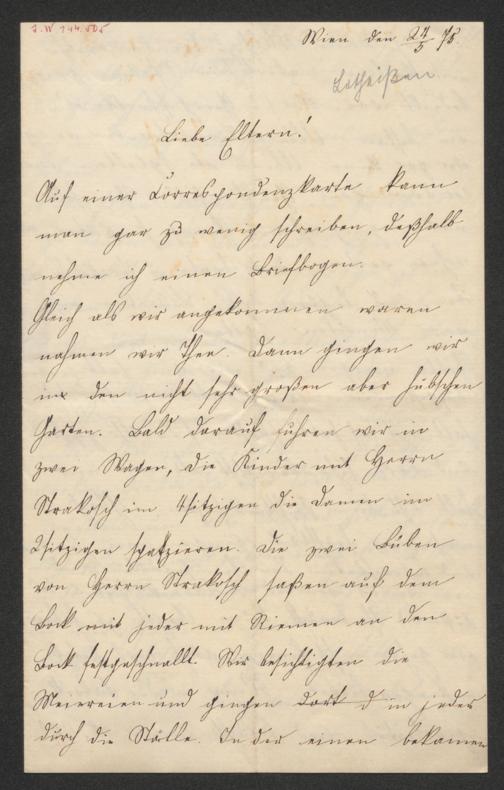 J. N 144.505
Wien den 24/5 75.
Lotheißen
Liebe Eltern!
Auf einer Correspondenzkarte kann
man gar zu wenig schreiben, deßhalb
nehme ich einen Briefbogen.
Gleich als wir angekommen waren
nahmen wir Thee. Dann gingen wir
in den nicht sehr großen aber hübschen
Garten. Bald darauf fuhren wir in
zwei Wagen, die Kinder mit Herrn
Strakosch im 4sitzigen die Damen im
2sitzigen spatzieren. Die zwei Buben
von Herrn Strakosch saßen auf dem
Bock mit jeder mit Riemen an den
Bock festgeschnallt. Wir besichtigten die
Meiereien und gingen dort d in jeder
durch die Ställe. In der einen bekamen